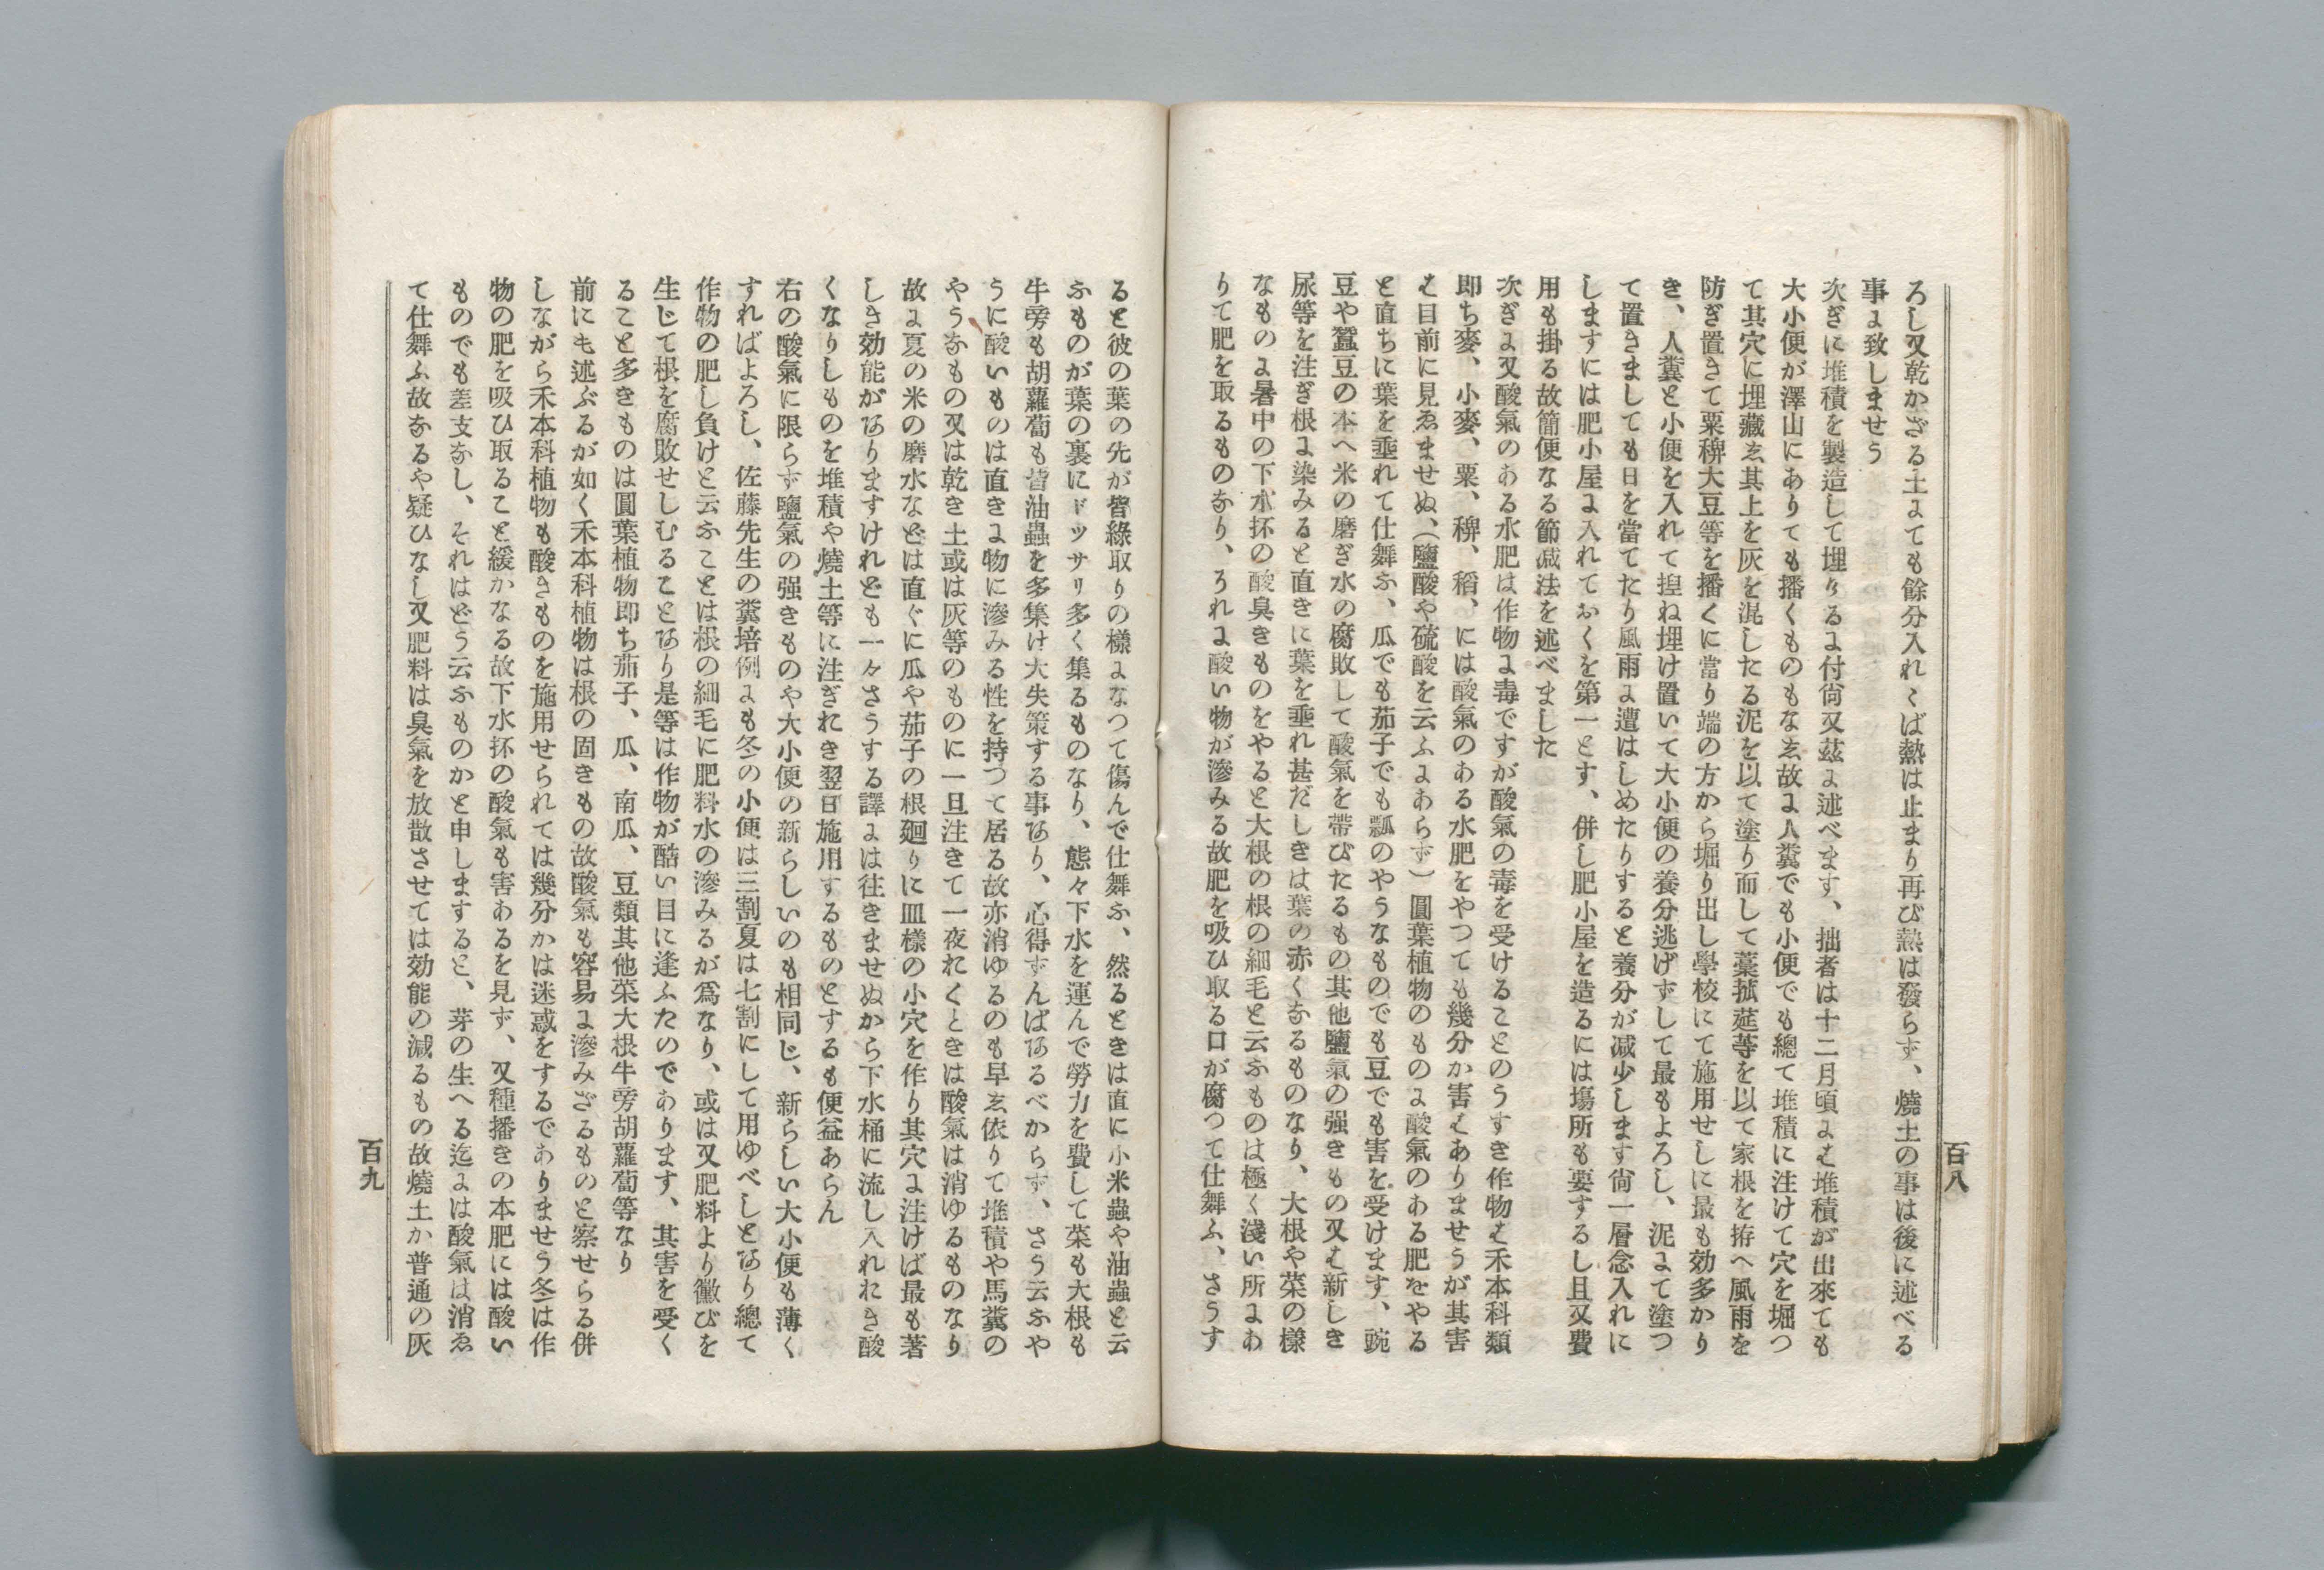 百八
ろし又乾かざる土にても餘分入れくば熱は止まり再び熱は發らず、燒土の事は後に述べる
事に致しませう
次ぎに堆積を製造して埋りるに付尙又茲に述べます、拙者は十二月頃にも堆積が出來ても
大小便が澤山にありても播くものもなゑ故に人糞でも小便でも總て堆積に注けて穴を堀つ
て其穴に埋藏ゑ其上を灰を混したる泥を以て塗り而して藁菰莚等を以て家根を拵へ風雨を
防ぎ置きて粟稗大豆等を播くに當り端の方から堀り出し學校にて施用せしに最も効多かり
き、人糞と小便を入れて捏ね埋け置いて大小便の養分逃げずして最もよろし、泥にて塗つ
て置きましても日を當てたり風雨に遭はしめたりすると養分が減少します尙一層念入れに
しますには肥小屋に入れておくを第一とす、併し肥小屋を造るには塲所も要するし且又費
用も掛る故簡便なる節减法を述べました
次ぎに又酸氣のある水肥は作物に毒ですが酸氣の毒を受けることのうすき作物も禾本科類
即ち麥、小麥、粟、稗、稻、には酸氣のある水肥をやつても幾分か害もありませうが其害
も目前に見ゑませぬ、（鹽酸や硫酸を云ふにあらず）圓葉植物のものに酸氣のある肥をやる
と直ちに葉を垂れて仕舞ふ、瓜でも茄子でも瓢のやうなものでも豆でも害を受けます、豌
豆や蠶豆の本へ米の磨ぎ水の腐敗して酸氣を帶びたるもの其他鹽氣の强きもの又も新しき
尿等を注ぎ根に染みると直きに葉を垂れ甚だしきは葉の赤くなるものなり、大根や菜の樣
なものに暑中の下水抔の酸臭きものをやると大根の根の細毛と云ふものは極く淺い所にあ
りて肥を取るものなり、ろれに酸い物が滲みる故肥を吸ひ取る口が腐つて仕舞ふ、さうす
ると彼の葉の先が皆綠取りの樣になつて傷んで仕舞ふ、然るときは直に小米蟲や油蟲と云
ふものが葉の裏にドッサリ多く集るものなり、態々下水を運んで勞力を費して菜も大根も
牛旁も胡蘿蔔も皆油蟲を多集け大失策する事あり、心得ずんばあるべからず、さう云ふや
うに酸いものは直きに物に滲みる性を持つて居る故亦消ゆるのも早ゑ依りて堆積や馬糞の
やうなもの又は乾き土或は灰等のものに一旦注きて一夜れくときは酸氣は消ゆるものなり
故に夏の米の磨水などは直ぐに瓜や茄子の根廻りに皿樣の小穴を作り其穴に注けば最も著
しき効能がありますけれども一々さうする譯には往きませぬから下水桶に流し入れれき酸
くなりしものを堆積や燒土等に注ぎれき翌日施用するものとするも便益あらん
右の酸氣に限らず鹽氣の强きものや大小便の新らしいのも相同じ、新らしい大小便も薄く
すればよろし、佐藤先生の糞培例にも冬の小便は三割夏は七割にして用ゆべしとあり總て
作物の肥し負けと云ふことは根の細毛に肥料水の滲みるが爲なり、或は又肥料より黴びを
生じて根を腐敗せしむることあり是等は作物が酷い目に逢ふたのであります、其害を受く
ること多きものは圓葉植物即ち茄子、瓜、南瓜、豆類其他菜大根牛旁胡蘿蔔等なり
前にも述ぶるが如く禾本科植物は根の固きもの故酸氣も容易に滲みざるものと察せらる併
しながら禾本科植物も酸きものを施用せられては幾分かは迷惑をするでありませう冬は作
物の肥を吸ひ取ること緩かなる故下水抔の酸氣も害あるを見ず、又種播きの本肥には酸い
ものでも差支なし、それはどう云ふものかと申しますると、芽の生へる迄には酸氣は消ゑ
て仕舞ふ故なるや疑ひなし又肥料は臭氣を放散させては効能の減るもの故燒土か普通の灰
百九